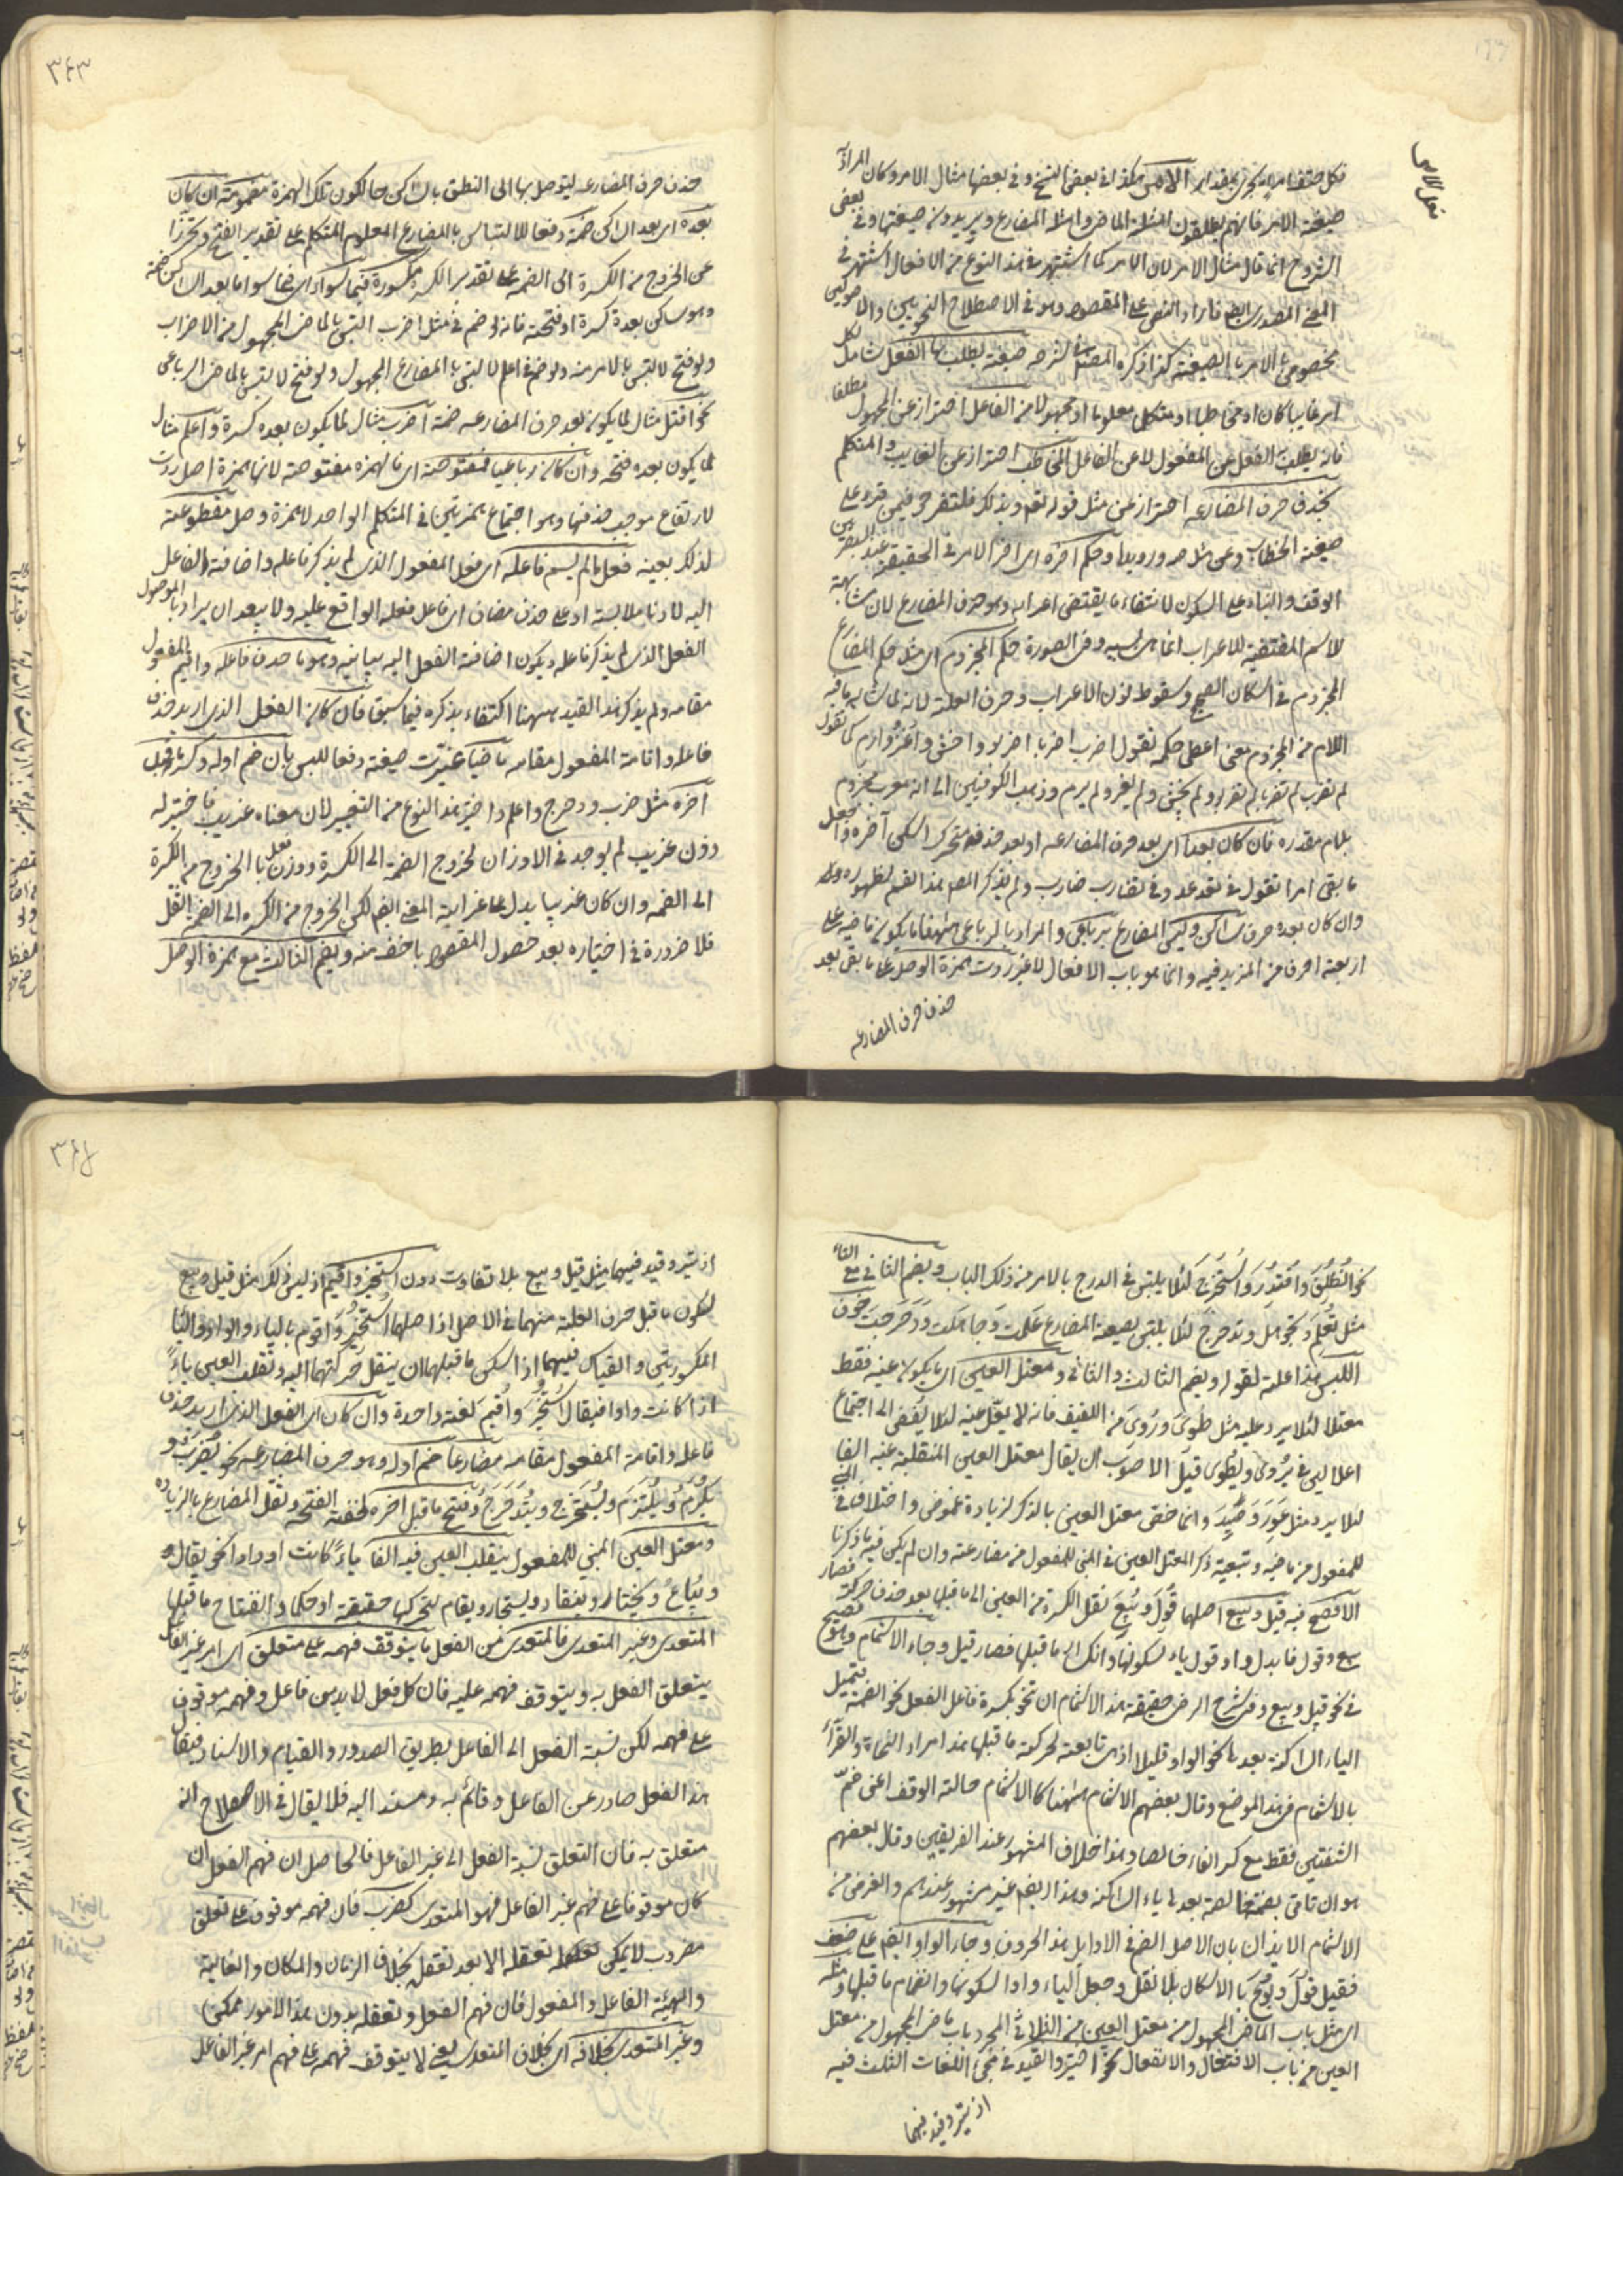 فعل الامر
فكل صنف امر يجرى بعد امر الامر هكذا فى بعض النسخ وفى بعضها مثال الامر وكان المراد به
صيغة الامر فانهم يطلقون امثلة الماضى وامثلة المضارع ويريدون صيغتها وفى بعض
الشروح انما قال مثال الامر لان الامر كما اشتهر فى هذا النوع من الافعال اشتهر فى
المعنى المصدرى ايضا فاراد النص على المقصود وهو فى الاصطلاح النحويين والاصوليين
مخصوص بالامر بالصيغة كذا ذكره المصنف فى شرحه صيغة يطلب بها الفعل شامل لكل
امر غايبا كان او مخاطبا او متكلما معلوما او مجهولا من الفاعل احتراز عن المجهول مطلقا
فانه يطلب الفعل عن المفعول لا عن الفاعل المخاطب احتراز عن الغايب والمتكلم
بحذف حرف المضارعة احتراز عن مثل قوله تعالى فبذلك فلتفرحوا فيمن قرء على
صيغة الخطاب وعن مثل صه ورويدا وحكم آخره اى آخر الامر فى الحقيقة عند البصريين
الوقف والبناء على السكون لانتفاء ما يقتضى اعرابه وهو حرف المضارع لان مشابهة
للاسم المقتضية للاعراب انما هى بسببه وفى الصورة حكم المجزوم اى مثل حكم المضارع
المجزوم فى اسكان الصحيح وسقوط نون الاعراب وحرف العلة لانه لما شابه ما فيه
اللام من المجزوم معنى اعطى حكمه تقول اضرب اضربا اضربوا واخش واغز وارم كما تقول
لم تضرب لم تضربا لم تضربوا ولم يخش ولم يغز ولم يرم وذهب الكوفيين الى انه معرب مجزوم
بلام مقدرة فان كان بعده اى بعد حرف المضارعة او بعد حذفه متحرك اسكن آخره واجعل
ما بقى امرا تقول فى تعد عد وفى تضارب ضارب ولم يذكر المصنف هذا القسم لظهوره
وان كان بعده حرف ساكن وليس المضارع برباعى والمراد بالرباعى ههنا ما يكون ماضيه على
اربعة احرف من المزيد فيه وانما هو باب الافعال لا غير زدت همزة الوصل على ما بقى بعد
حذف حرف المضارعة
٣٤٣
حذف حرف المضارعة ليتوصل بها الى النطق بالساكن حالكون تلك الهمزة مضمومة ان كان
بعده اى بعد الساكن ضمة دفعا للالتباس بالمضارع المعلوم المتكلم على تقدير الفتح وتحرزا
عن الخروج من الكسرة الى الضمة على تقدير الكسرة مكسورة فيما سواه اى فيما سوا ما بعد الساكن ضمة
وهو ساكن بعده كسرة او فتحة فانه لو ضم فى مثل اضرب التبس بالماضى المجهول من الاضراب
ولو فتح لالتبس بالامر منه ولو ضم فى اعلم لالتبس بالمضارع المجهول ولو فتح لالتبس بالماضى الرباعى
نحو اقتل مثال لما يكون بعد حرف المضارعة ضمة اضرب مثال لما يكون بعده كسرة واعلم مثال
لما يكون بعده فتحة وان كان رباعيا فمفتوحة اى فالهمزة مفتوحة لانها همزة اصل ردت
لارتفاع موجب حذفها وهو اجتماع همزتين فى المتكلم الواحد لا همزة وصل مقطوعة
لذلك بعينه فعل ما لم يسم فاعله اى فعل المفعول الذى لم يذكر فاعله واضافة الفاعل
اليه لادنى ملابسة او على حذف مضاف اى فاعل فعله الواقع عليه ولا يبعد ان يراد بالموصول
الفعل الذى لم يذكر فاعله ويكون اضافة الفعل اليه بيانية وهو ما حذف فاعله واقيم المفعول
مقامه ولم يذكر هذا القيد ههنا اكتفاء بذكره فيما سبق فان كان الفعل الذى اريد حذف
فاعله واقامة المفعول مقامه ماضيا غيرت صيغته دفعا للبس بان ضم اوله وكسر ما قبل
آخره مثل ضرب ودحرج واعلم واختير هذا النوع من التغيير لان معناه غريب فاختير له
وزن غريب لم يوجد فى الاوزان لخروج الضمة الى الكسرة ووزن فعل بالخروج من الكسرة
الى الضمة وان كان غريبا يدل على غرابة المعنى ايضا لكن الخروج من الكسرة الى الضمة اثقل
فلا ضرورة فى اختياره بعد حصول المقصود باخف منه ويضم الثالث مع همزة الوصل
نحو انطلق واقتدر واستخرج لئلا يلتبس فى الدرج بالامر من ذلك الباب ويضم الثانى مع التاء
مثل تعلم وتجوهل وتدحرج لئلا يلتبس بصيغة المضارع علمت وجاهلت ودحرجت خوف
اللبس هذا علة لقوله ويضم الثالث والثانى ومعتل العين اى ما يكون عينه فقط
معتلا لئلا يرد عليه مثل طوى وروى من اللفيف فانه لا يعل عينه لئلا يفضى الى اجتماع
اعلالين فى يروى ويطوى قيل الاصوب ان يقال معتل العين المنقلبة عينه الفا
لئلا يرد مثل عور وصيد وانما خص معتل العين بالذكر لزيادة غموض واختلاف فى المبنى
للمفعول من ماضيه وتبعية ذكر المعتل العين فى المبنى للمفعول من مضارعته وان لم يكن فيه ما ذكرنا
الافصح فيه قيل وبيع اصلهما قول وبيع نقل الكسرة من العين الى ما قبلها بعد حذف حركته فصار
بيع وقول فابدل واو قول ياء لسكونها وانكسار ما قبلها فصار قيل وجاء الاشمام وهو فصيح
فى نحو قيل وبيع وفى شرح الرضى حقيقة هذا الاشمام ان تنحو بكسرة فاء الفعل نحو الضمة فتميل
الياء الساكنة بعدها نحو الواو قليلا اذ هى تابعة لحركة ما قبلها هذا مراد النحاة والقراء
بالاشمام فى هذا الموضع وقال بعضهم الاشمام ههنا كالاشمام حالة الوقف اعنى ضم
الشفتين فقط مع كسر الفاء خالصا وهذا خلاف المشهور عند الفريقين وقال بعضهم
هو ان تاتى بضمة خالصة بعدها ياء الساكنة وهذا ايضا غير مشهور عندهم والغرض من
الاشمام الايذان بان الاصل الضم فى اوايل هذه الحروف وجاء الواو ايضا على ضعف
فقيل قول وبوع بالاسكان بلا نقل وجعل الياء واوا لسكونها وانضمام ما قبلها ومثله
اى مثل باب الماضى المجهول من معتل العين من الثلاثى المجرد باب ماضى المجهول من معتل
العين من باب الافتعال والانفعال نحو اختير وانقيد فى مجئ اللغات الثلث فيه
اذ تير وقيد فيهما
٣٤٤
اذ تير وقيد فيهما مثل قيل وبيع بلا تفاوت دون استخير واقيم اذ ليس ذلك مثل قيل وبيع
لسكون ما قبل حرف العلة منهما فى الاصل اذ اصلهما استخير واقوم بالياء والواو
المكسورتين والقياس فيهما اذا سكن ما قبلهما ان ينقل حركتهما اليه وتقلب العين ياء
اذا كانت واوا فيقال استخير واقيم لغة واحدة وان كان اى الفعل الذى اريد حذف
فاعله واقامة المفعول مقامه مضارعا ضم اوله وهو حرف المضارعة نحو يضرب
يكرم ويلتزم ويستخرج ويتدحرج وفتح ما قبل آخره لخفة الفتحة وثقل المضارع بالزيادة
ومعتل العين المبنى للمفعول ينقلب العين فيه الفا ياء كانت او واوا نحو يقال
ويباع ويختار وينقاد ويستخار ويقام لتحركها حقيقة او حكما وانفتاح ما قبلها
المتعدى وغير المتعدى فالمتعدى من الفعل ما يتوقف فهمه على متعلق اى امر غير الفاعل
يتعلق الفعل به ويتوقف فهمه عليه فان كل فعل لا بد من فاعل وفهمه موقوف
على فهمه لكن نسبة الفعل الى الفاعل بطريق الصدور والقيام والاسناد فيقال
هذا الفعل صادر عن الفاعل وقائم به ومسند اليه فلا يقال فى الاصطلاح انه
متعلق به فان التعلق نسبة الفعل الى غير الفاعل فالحاصل ان فهم الفعل ان
كان موقوفا على فهم غير الفاعل فهو المتعدى كضرب فان فهمه موقوف على تعلق
مضروب لا يمكن تعقله الا بعد تعقل بخلاف الزمان والمكان والغاية
والهيئة الفاعل والمفعول فان فهم الفعل وتعقله بدون هذه الامور ممكن
وغير المتعدى بخلافه اى بخلاف المتعدى يعنى لا يتوقف فهمه على فهم امر غير الفاعل